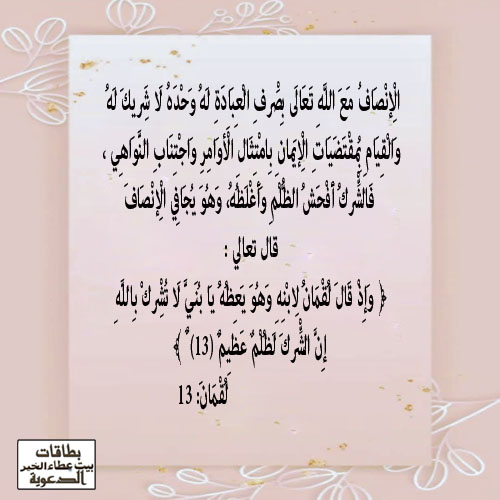 الْإِنْصَافُ مَعَ اللَّه تَعَالَى بِصَّرفِ الْعبَادَةِ لَهُ وَحْدَهُ لَا شَرِيكَ لَهُ
وَالْقِيَامِ بِمُقْتَضَيَاتِ الْإِيمَانِ بِامْتِثَالِ الْأَوَامِرِ وَاجْتِنَابِ النَّوَاهِي ،
فَالشِّركُ أَفْحَشُ الظُّلْمِ وَأَغْلَظُهُ، وَهُوَ يُجَافِي الْإِنْصَافَ
قال تعالي :
﴿ وَإِذْ قَالَ لُقْمَانُ لِابْنِهِ وَهُوَ يَعِظُهُ يَا بُنَيَّ لَا تُشْرِكْ بِاللَّهِ
إِنَّ الشِّركَ لَظُلْمٌ عَظِيمٌ (13) ﴾
لُقْمَانَ: 13
بطاقات
بيت عطاء الخير
الدعوية